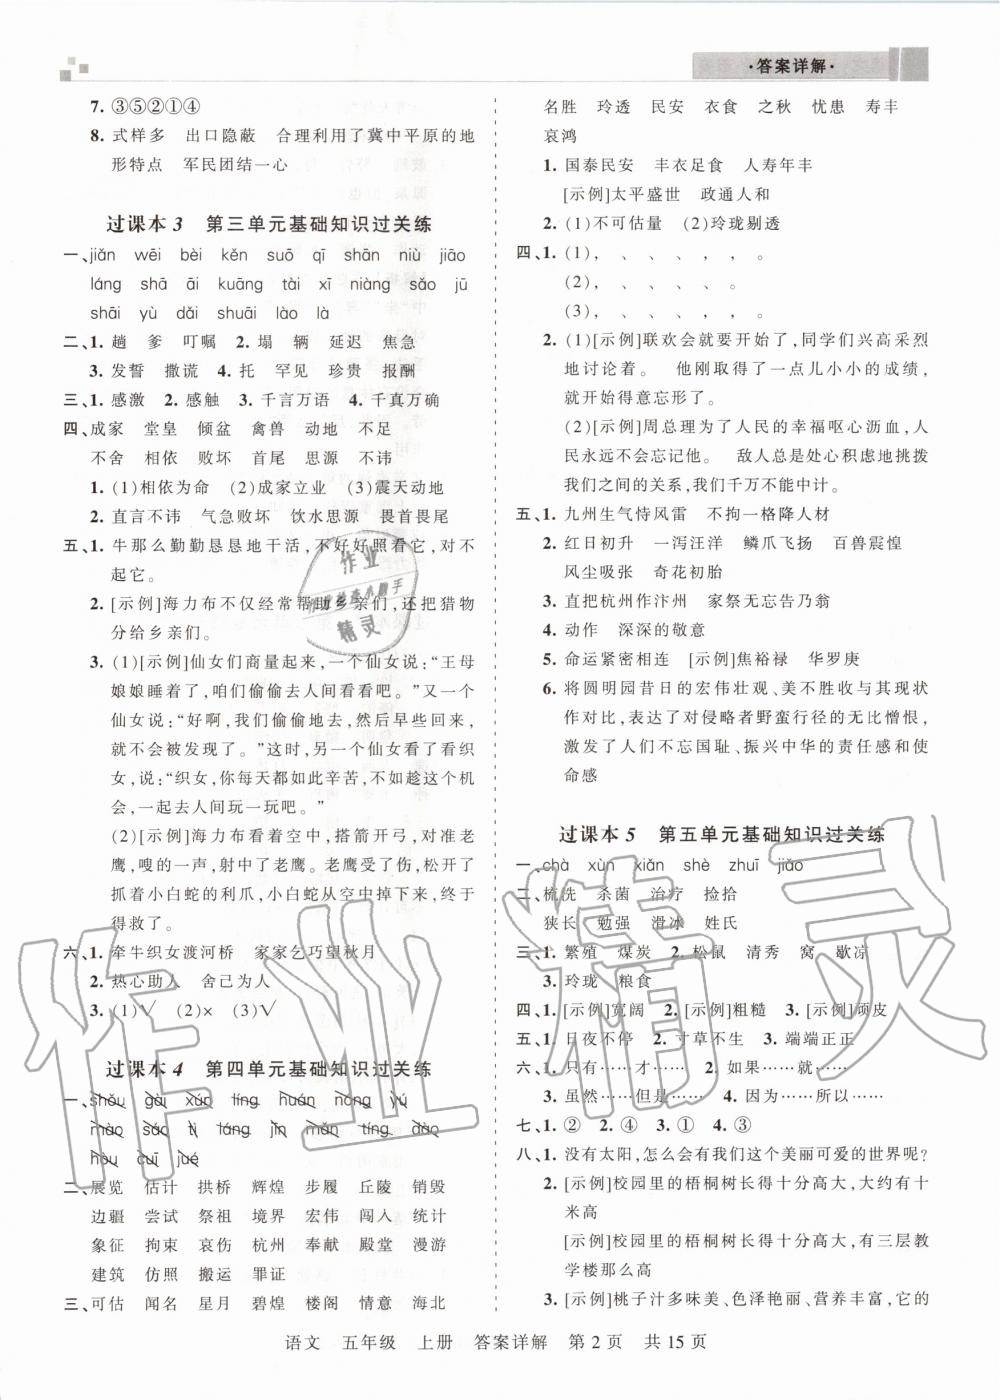 ·答案详解·
7. ③⑤②①④
8. 式样多　出口隐蔽　合理利用了冀中平原的地
形特点　军民团结一心
过课本 3　第三单元基础知识过关练
一、jiǎn　wēi　bèi　kěn　suō　qī　shān　niù　jiāo
láng　shā　āi　kuāng　tài　xī　niàng　sǎo　jū
shāi　yù　dǎi　shuāi　lào　là
二、1. 趟　爹　叮嘱　2. 塌　辆　延迟　焦急
3. 发誓　撒谎　4. 托　罕见　珍贵　报酬
三、1. 感激　2. 感触　3. 千言万语　4. 千真万确
四、成家　堂皇　倾盆　禽兽　动地　不足
不舍　相依　败坏　首尾　思源　不讳
1. (1)相依为命　(2)成家立业　(3)震天动地
2. 直言不讳　气急败坏　饮水思源　畏首畏尾
五、1. 牛那么勤勤恳恳地干活,不好好照看它,对不
起它。
2. [示例]海力布不仅经常帮助乡亲们,还把猎物
分给乡亲们。
3. (1)[示例]仙女们商量起来,一个仙女说:“王母
娘娘睡着了,咱们偷偷去人间看看吧。”又一个
仙女说:“好啊,我们偷偷地去,然后早些回来,
就不会被发现了。”这时,另一个仙女看了看织
女,说:“织女,你每天都如此辛苦,不如趁这个机
会,一起去人间玩一玩吧。”
(2)[示例]海力布看着空中,搭箭开弓,对准老
鹰,嗖的一声,射中了老鹰。老鹰受了伤,松开了
抓着小白蛇的利爪,小白蛇从空中掉下来,终于
得救了。
六、1. 牵牛织女渡河桥　家家乞巧望秋月
2. 热心助人　舍己为人
3. (1)√　(2)×　(3)√
过课本 4　第四单元基础知识过关练
一、shǒu　gài　xún　tíng　huán　nóng　yú
mào　sāo　lì　táng　jǐn　mǎn　tíng　dào
hòu　cuī　jué
二、展览　估计　拱桥　辉煌　步履　丘陵　销毁
边疆　尝试　祭祖　境界　宏伟　闯入　统计
象征　拘束　哀伤　杭州　奉献　殿堂　漫游
建筑　仿照　搬运　罪证
三、可估　闻名　星月　碧煌　楼阁　情意　海北
名胜　玲透　民安　衣食　之秋　忧患　寿丰
哀鸿
1. 国泰民安　丰衣足食　人寿年丰
[示例]太平盛世　政通人和
2. (1)不可估量　(2)玲珑剔透
四、1. (1),　、　、　、　、　,　。
(2),　、　、　、　、　。
(3),　、　、　,　,　。
2. (1)[示例]联欢会就要开始了,同学们兴高采烈
地讨论着。　他刚取得了一点儿小小的成绩,
就开始得意忘形了。
(2)[示例]周总理为了人民的幸福呕心沥血,人
民不会忘记他。　敌人总是处心积虑地挑拨
我们之间的关系,我们千万不能中计。
五、1. 九州生气恃风雷　不拘一格降人材
2. 红日初升　一泻汪洋　鳞爪飞扬　百兽震惶
风尘吸张　奇花初胎
3. 直把杭州作汴州　家祭无忘告乃翁
4. 动作　深深的敬意
5. 命运紧密相连　[示例]焦裕禄　华罗庚
6. 将圆明园昔日的宏伟壮观、美不胜收与其现状
作对比,表达了对侵略者野蛮行径的无比憎恨,
激发了人们不忘国耻、振兴中华的责任感和使
命感
过课本 5　第五单元基础知识过关练
一、chà　xùn　xiǎn　shè　zhuī　jiǎo
二、梳洗　杀菌　治疗　捡拾
狭长　勉强　滑冰　姓氏
三、1. 繁殖　煤炭　2. 松鼠　清秀　窝　歇凉
3. 玲珑　粮食
四、1. [示例]宽阔　2. [示例]粗糙　3. [示例]顽皮
五、1. 日夜不停　2. 寸草不生　3. 端端正正
六、1. 只有……才……　2. 如果……就……
3. 虽然……但是……　4. 因为……所以……
七、1. ②　2. ④　3. ①　4. ③
八、1. 没有太阳,怎么会有我们这个美丽可爱的世界呢?
2. [示例]校园里的梧桐树长得十分高大,大约有十
米高
[示例]校园里的梧桐树长得十分高大,有三层教
学楼那么高
3. [示例]桃子汁多味美、色泽艳丽、营养丰富,它的
语文　五年级　上册　答案详解　第 2 页　共 15 页
作业精灵